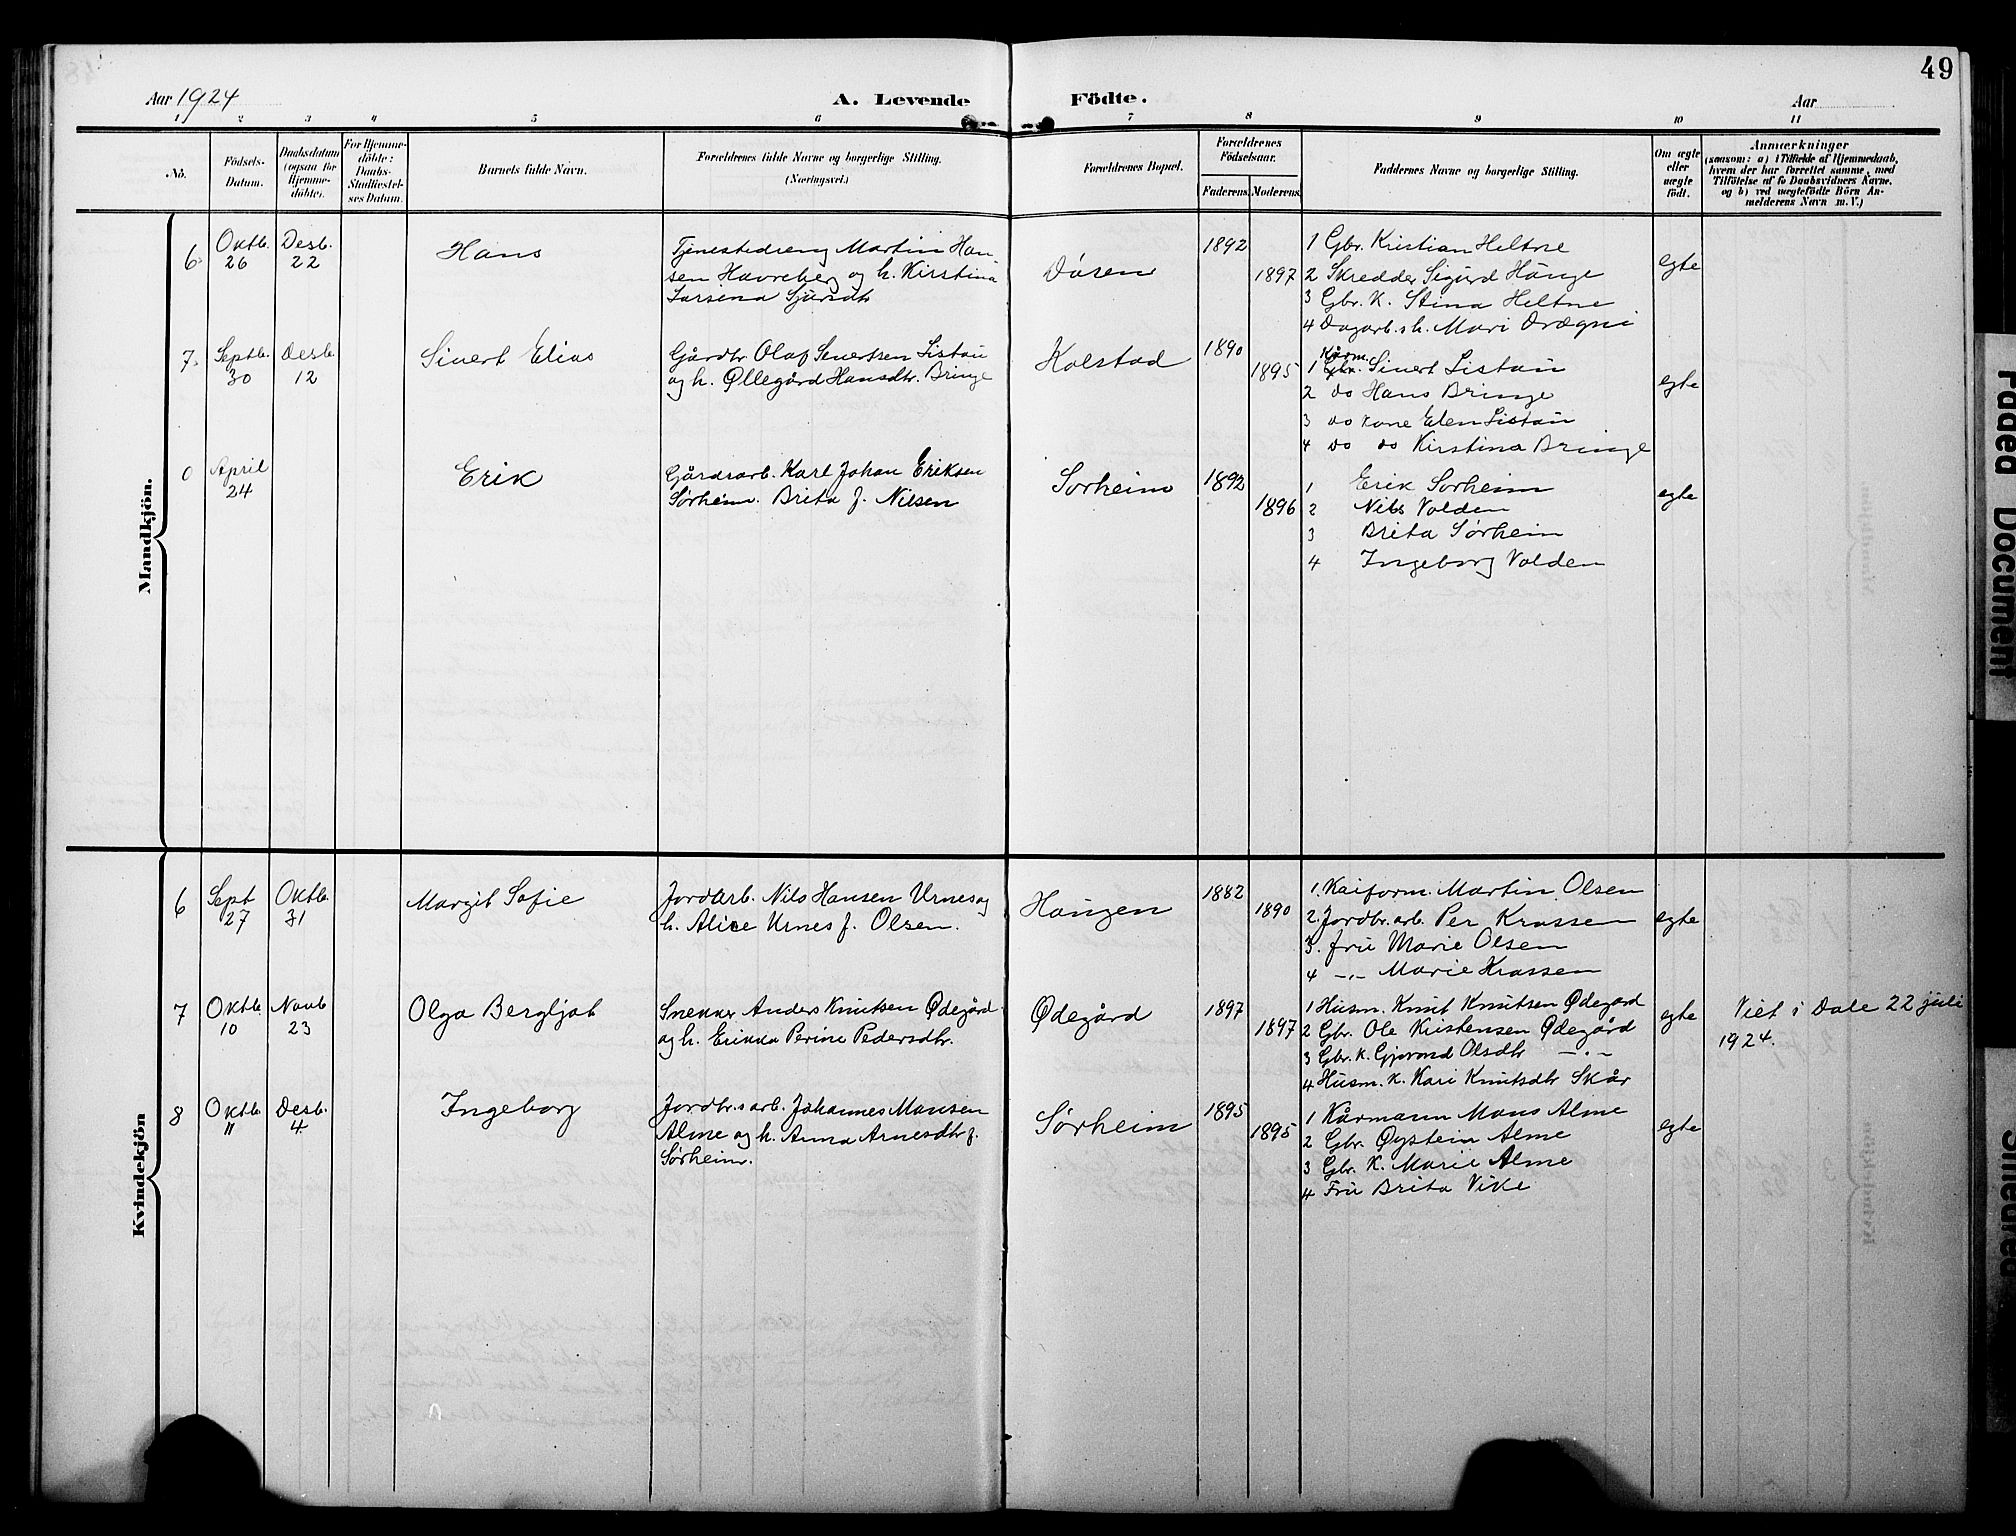 49
Aar 1924
A. Levende Födte.
Aar
1 2 3 4 5 6 7 8 9 10 11
No.
Födsels-Datum.
Daabsdatum (ogsaa for Hjemmedöbte).
For Hjemmedöbte: Daabs-Stadfæstelses Datum.
Barnets fulde Navn.
Forældrenes fulde Navne og borgerlige Stilling. (Næringsvei.)
Forældrenes Bopæl.
Forældrenes Födselsaar.
Faderens. Moderens.
Faddernes Navne og borgerlige Stilling.
Om ægte eller uægte födt.
Anmærkninger
(saasom: a) i Tilfælde af Hjemmedaab,
hvem der har forrettet samme, med
Tilföielse af to Daabsvidners Navne,
og b) ved uægtefödte Börn An-
melderens Navn m. V.)
Mandkjön.
6. Oktb. 26 Desb. 22
Hans
Tjenestedreng Martin Han-
sen Havreberg og h. Kirstina
Larsena Sjursdtr
Døsen
1892
1897
1 Gbr. Kristian Heltne
2 Skredder Sigurd Hauge
3 Gbr. K. Stina Heltne
4 Dagarb. h. Mari Drægni
egte
7. Septb. 30 Desb. 12
Sivert Elias
Gårdbr Olaf Sivertsen Listau
og h. Øllegård Hansdtr. Bringe
Kolstad
1890
1895
Kårm.
1 Gbr. Sivert Listau
2 do Hans Bringe
3 do kone Elen Listau
4 do do Kirstina Bringe
egte
0 April 24
Erik
Gårdsarb. Karl Johan Eriksen
Sørheim. Brita f. Nilsen
Sørheim
1892
1896
1 Erik Sørheim
2 Nils Volden
3 Brita Sørheim
4 Ingeborg Volden
egte
Kvindekjön
6 Sept 27 Oktb. 31
Margit Sofie
Jordarb. Nils Hansen Urnes og
h. Alice Urnes f. Olsen.
Haugen
1882
1890
1. Kaiform. Martin Olsen
2. Jordbr. arb. Per Krossen
3. fru Marie Olsen
4 -"- Marie Krossen
egte
7 Oktb 10 Novb 23
Olga Bergljot
Snekker Anders Knutsen Ødegård
og h. Erikka Perine Pedersdtr.
Ødegård
1897
1897
1 Husm. Knut Knutsen Ødegard
2 Gbr. Ole Kristensen Ødegård
3 Gbr. k. Gjørond Olsdtr -"-
4 Husm. k. Kari Knutsdtr Skår
egte
Viet i Dale 22 juli
1924.
8 Oktb. 11 Desb. 4
Ingeborg
Jordbr.sarb. Johannes Monsen
Alme og h. Anna Arnesdtr f.
Sørheim.
Sørheim
1895
1895
1 Kårmann Mons Alme
2 Gbr. Øystein Alme
3 Gbr. K. Marie Alme
4 Fru Brita Vike
egte
Faded Document